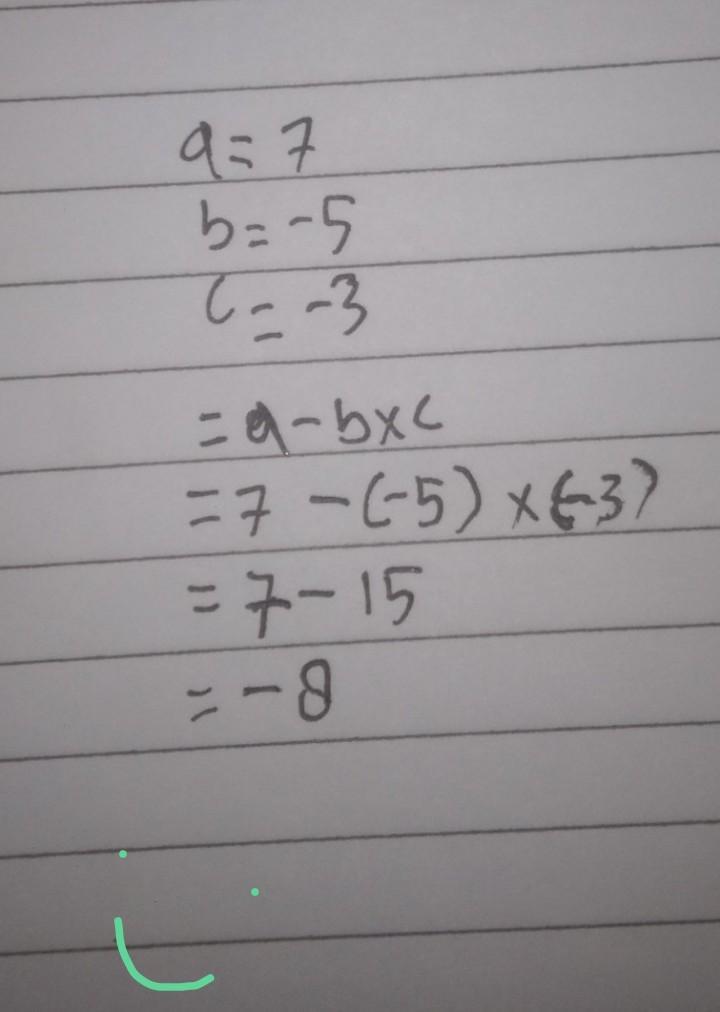 a = 7
b = -5
c = -3
= a - b × c
= 7 - (-5) × (-3)
= 7 - 15
= - 8